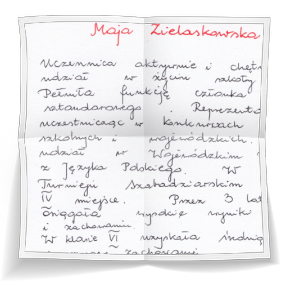 Maja Zielaskowska
Uczennica aktywnie i chętn
udział w życiu szkoły
Pełniła funkcję członka
sztandarowego. Reprezento
uczestnicząc w konkursach
szkolnych i wojewódzkich.
udział w Wojewódzkim
z Języka Polskiego. W
Turnieju Szaradziarskim
IV miejsce. Przez 3 lat
osiągała wysokie wyniki
i zachowaniu.
W klasie VI uzyskała średnią
zachowanie